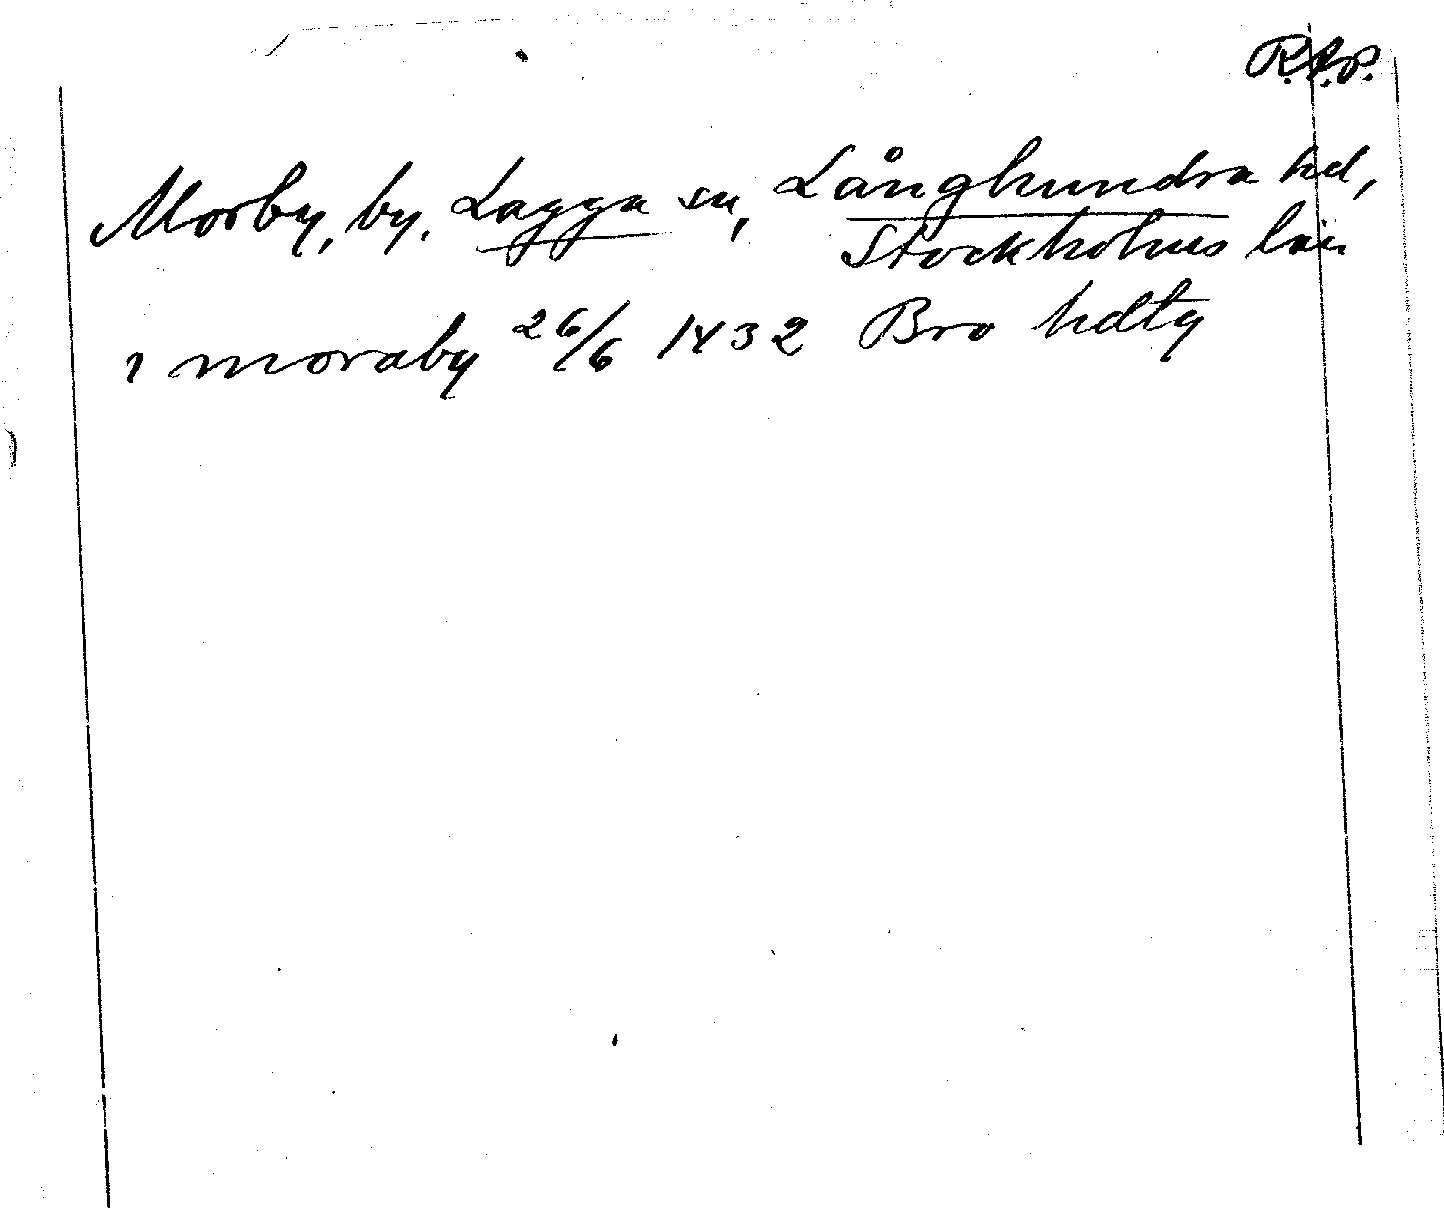 R.A.P.
Morby, by, Lagga sn, Långhundra hd,
Stockholms län
i moraby 26/6 1432 Bro hdtg